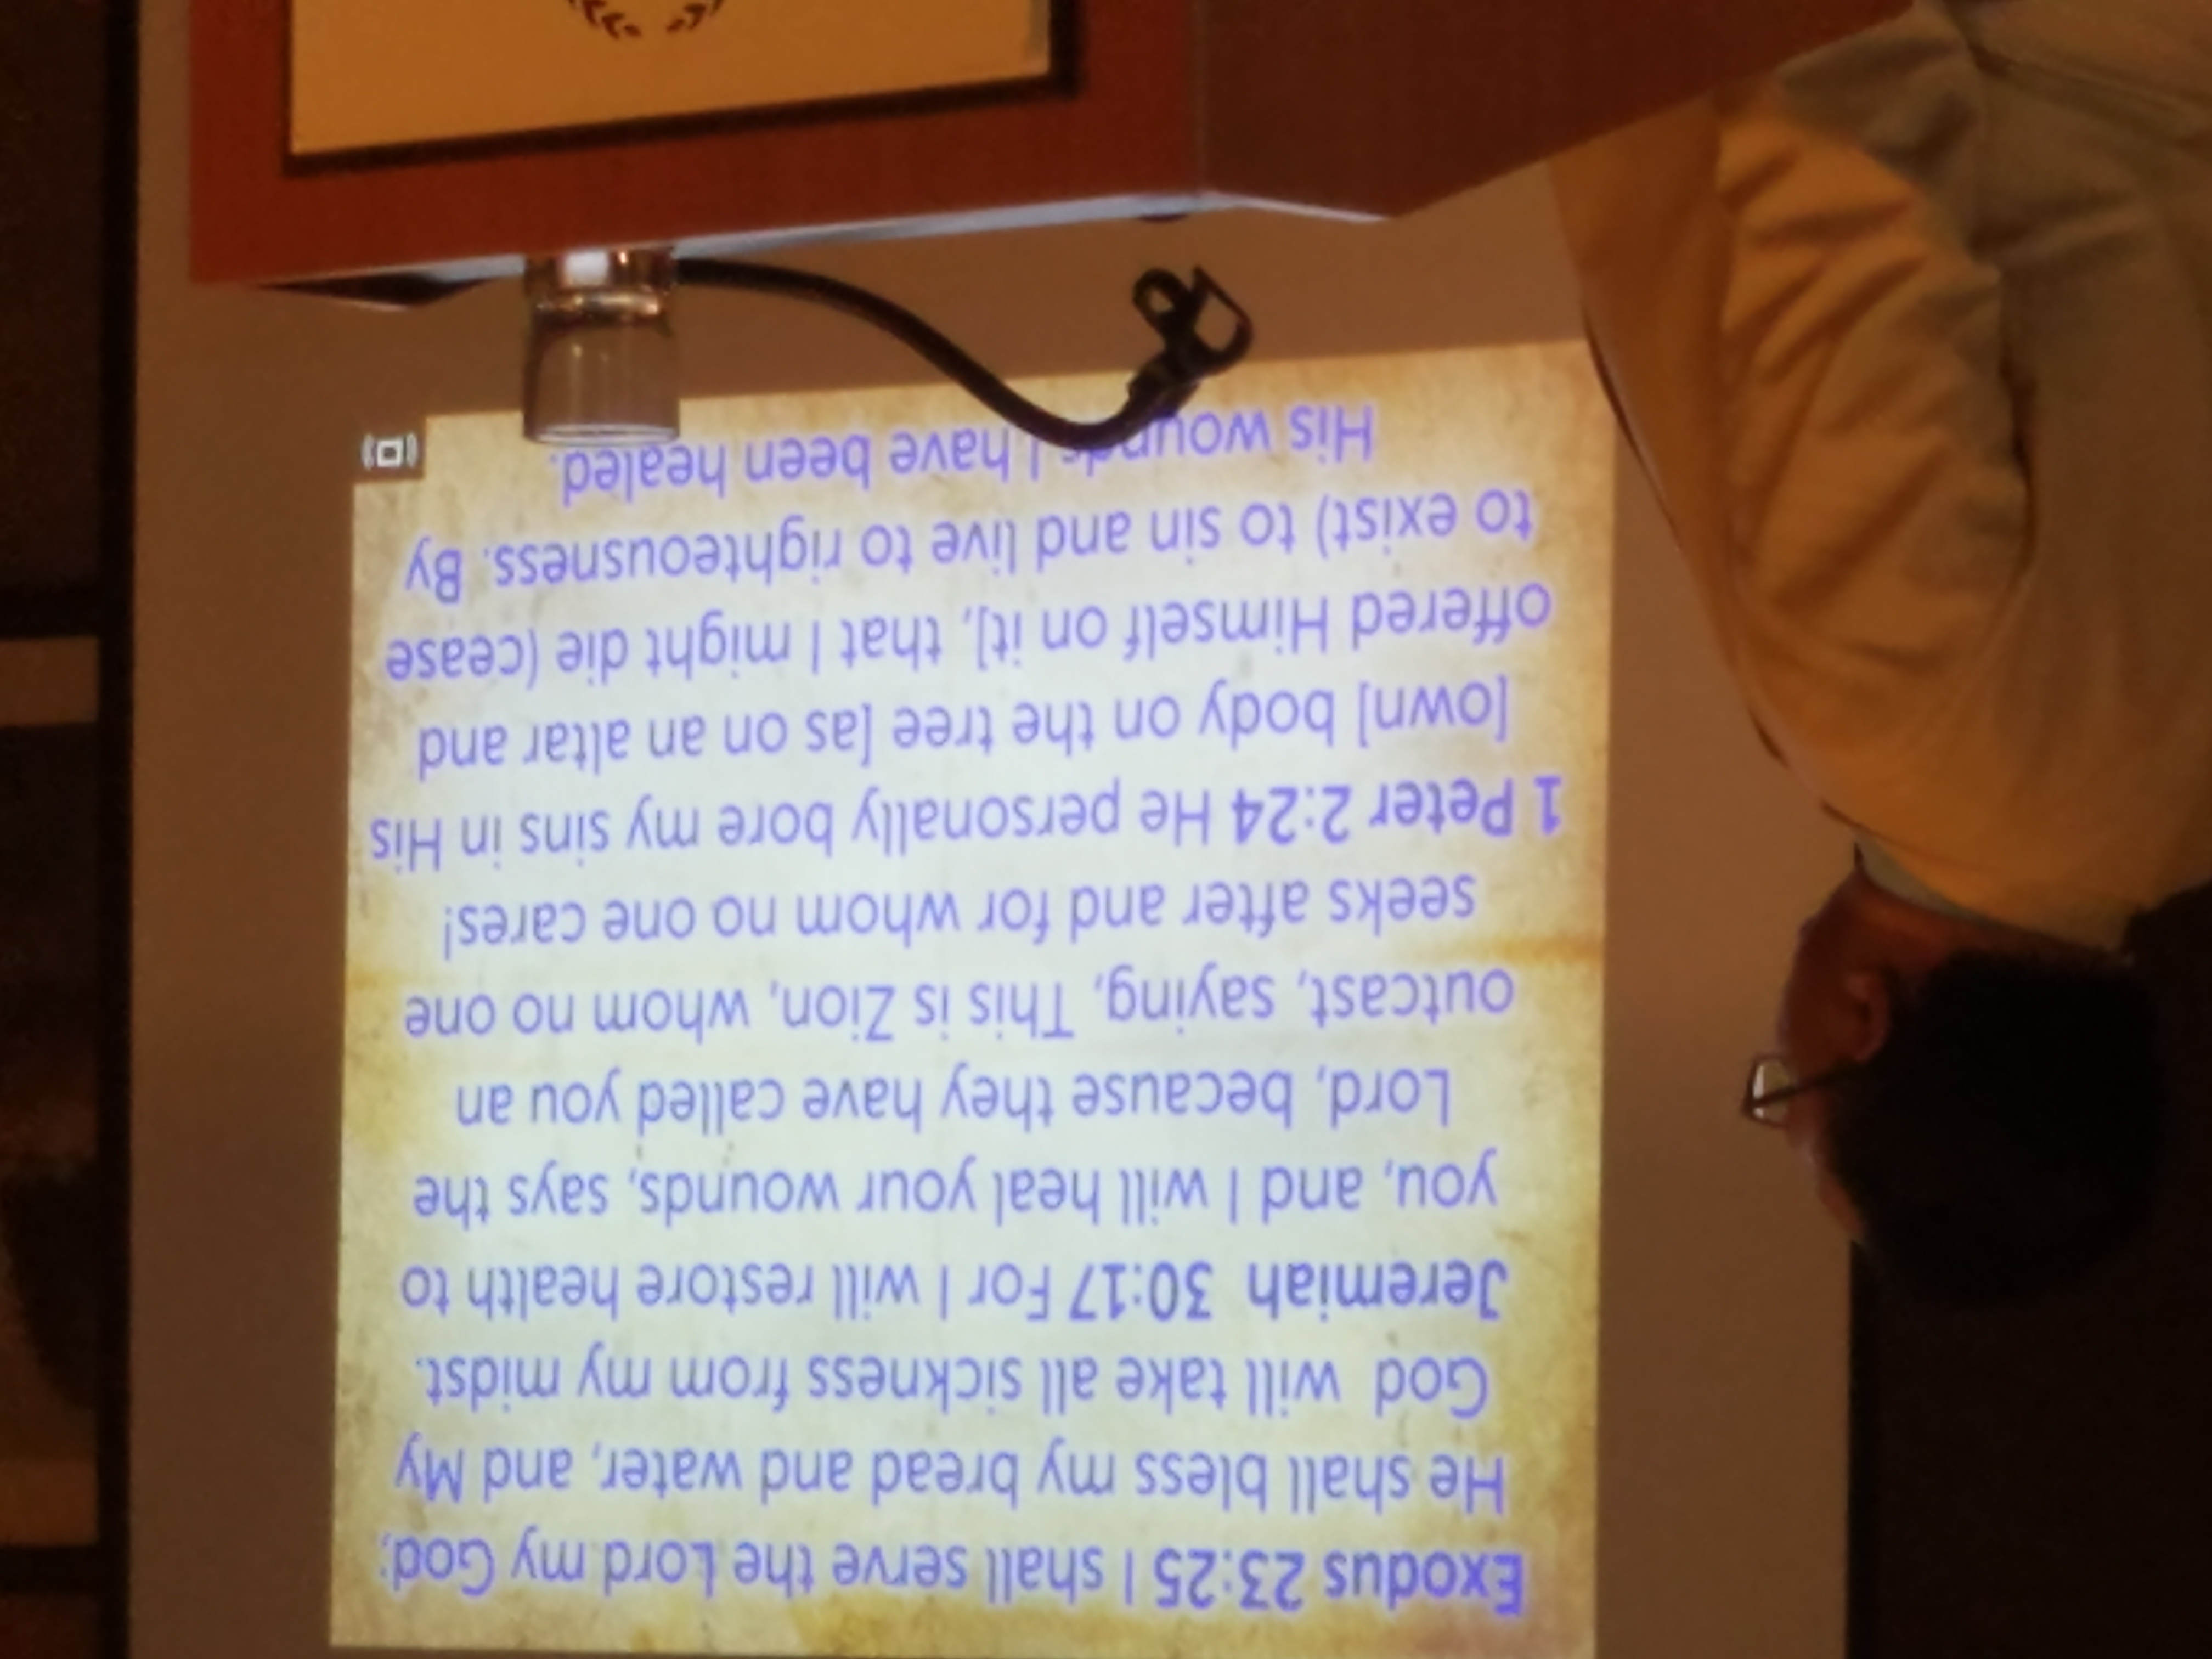 Exodus 23:25 I shall serve the Lord my God;
He shall bless my bread and water, and My
God will take all sickness from my midst.
Jeremiah 30:17 For I will restore health to
you, and I will heal your wounds, says the
Lord, because they have called you an
outcast, saying, This is Zion, whom no one
seeks after and for whom no one cares!
1 Peter 2:24 He personally bore my sins in His
[own] body on the tree [as on an altar and
offered Himself on it], that I might die (cease
to exist) to sin and live to righteousness. By
His wounds I have been healed.